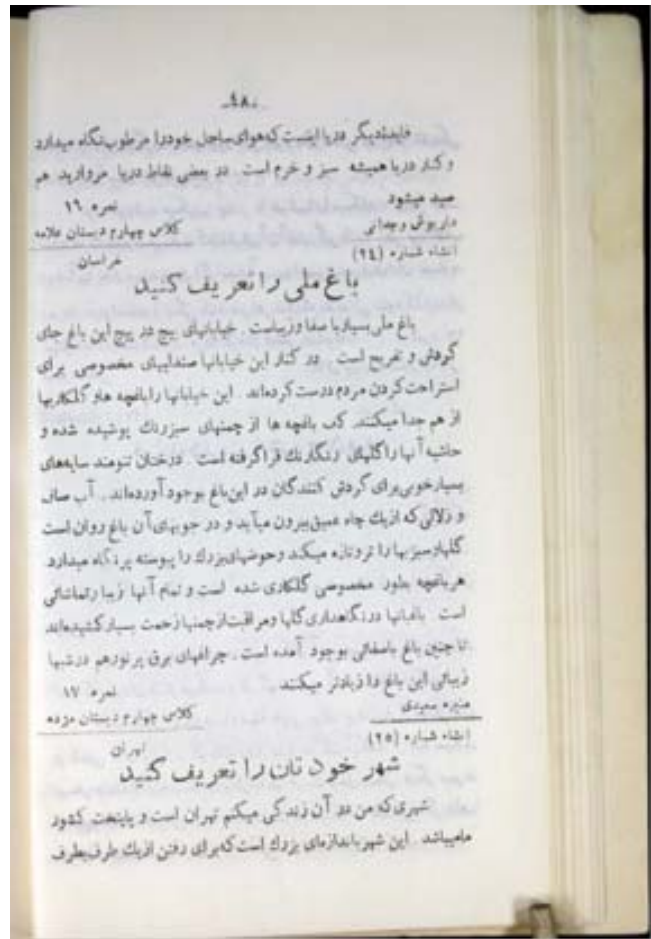 -٤٨-
فایدهٔ دیگر دریا اینست که هوای ساحل خود را مرطوب نگاه میدارد
و کنار دریا همیشه سبز و خرم است . در بعضی نقاط دریا مروارید هم
صید میشود نمره ١٦
داریوش وجدانی کلاس چهارم دبستان علامه
انشاء شماره (٢٤) خراسان
باغ ملی را تعریف کنید
باغ ملی بسیار با صفا و زیباست . خیابانهای پیچ در پیچ این باغ جای
گردش و تفریح است . در کنار این خیابانها صندلیهای مخصوصی برای
استراحت کردن مردم درست کرده‌اند . این خیابانها را باغچه ها و گلکاریها
از هم جدا میکنند. کف باغچه ها از چمنهای سبزرنك پوشیده شده و
حاشیه آنها را گلهای رنگارنك فرا گرفته است . درختان تنومند سایه‌های
بسیار خوبی برای گردش کنندگان در این باغ بوجود آورده‌اند . آب صاف
و زلالی که از یك چاه عمیق بیرون میآید و در جویهای آن باغ روان است
گلها و سبزیها را تر و تازه میکند و حوضهای بزرك را پیوسته پر نگاه میدارد
هر باغچه بطور مخصوصی گلکاری شده است و تمام آنها زیبا و تماشائی
است باغبانها در نگاهداری گلها و مراقبت از چمنها زحمت بسیار کشیده‌اند
تا چنین باغ باصفائی بوجود آمده است . چراغهای برق پر نور هم در شبها
زیبائی این باغ را زیادتر میکنند نمره ١٧
منیره سعیدی کلاس چهارم دبستان مژده
انشاء شماره (٢٥) تهران
شهر خودتان را تعریف کنید
شهری که من در آن زندگی میکنم تهران است و پایتخت کشور
ما میباشد . این شهر باندازه‌ای بزرك است که برای رفتن از یك طرف بطرف